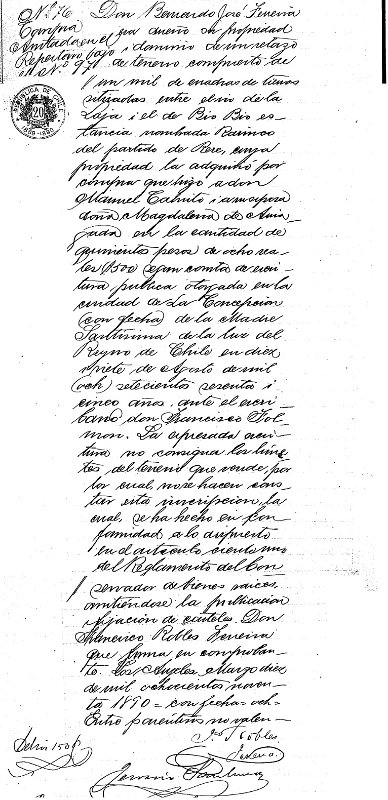 No 76
Compra
Anotada en el
Repertorio bajo
el No 97
REPUBLICA DE CHILE
20
1889-1890
Don Bernardo José Ferreira
es dueño en propiedad
i dominio de un retazo
de terreno compuesto de
un mil de cuadras de tierras
situadas entre el rio de la
Laja i el de Bio Bio es-
tancia nombrada
del partido de Rere, cuya
propiedad la adquirió por
compra que hizo a don
Manuel i a su esposa
doña Magdalena de
en la cantidad de
quinientos pesos de ocho rea-
les $500 segun consta de escri-
tura publica otorgada en la
ciudad de La Concepcion
(con fecha) de la Madre
Santisima de la Luz del
Reyno de Chile en diez
i siete de Agosto de mil
(och) setecientos sesenta i
cinco años, ante el escri-
bano don Francisco
La espresada escri-
tura no consigna los limi-
tes del terreno que vende, por
lo cual, no se hacen cons-
tar esta inscripcion, la
cual, se ha hecho en con-
formidad a lo dispuesto
en el artículo ciento uno
del Reglamento del Con
servador de bienes raices,
omitiéndose la publicacion
i fijación de carteles. Don
Americo Robles Ferreira
que firma en comproban-
te. Los Angeles, Marzo diez
de mil ochocientos noven-
ta 1890 = con fecha = och =
Entre parentesis no valen =
Robles
Ferreira